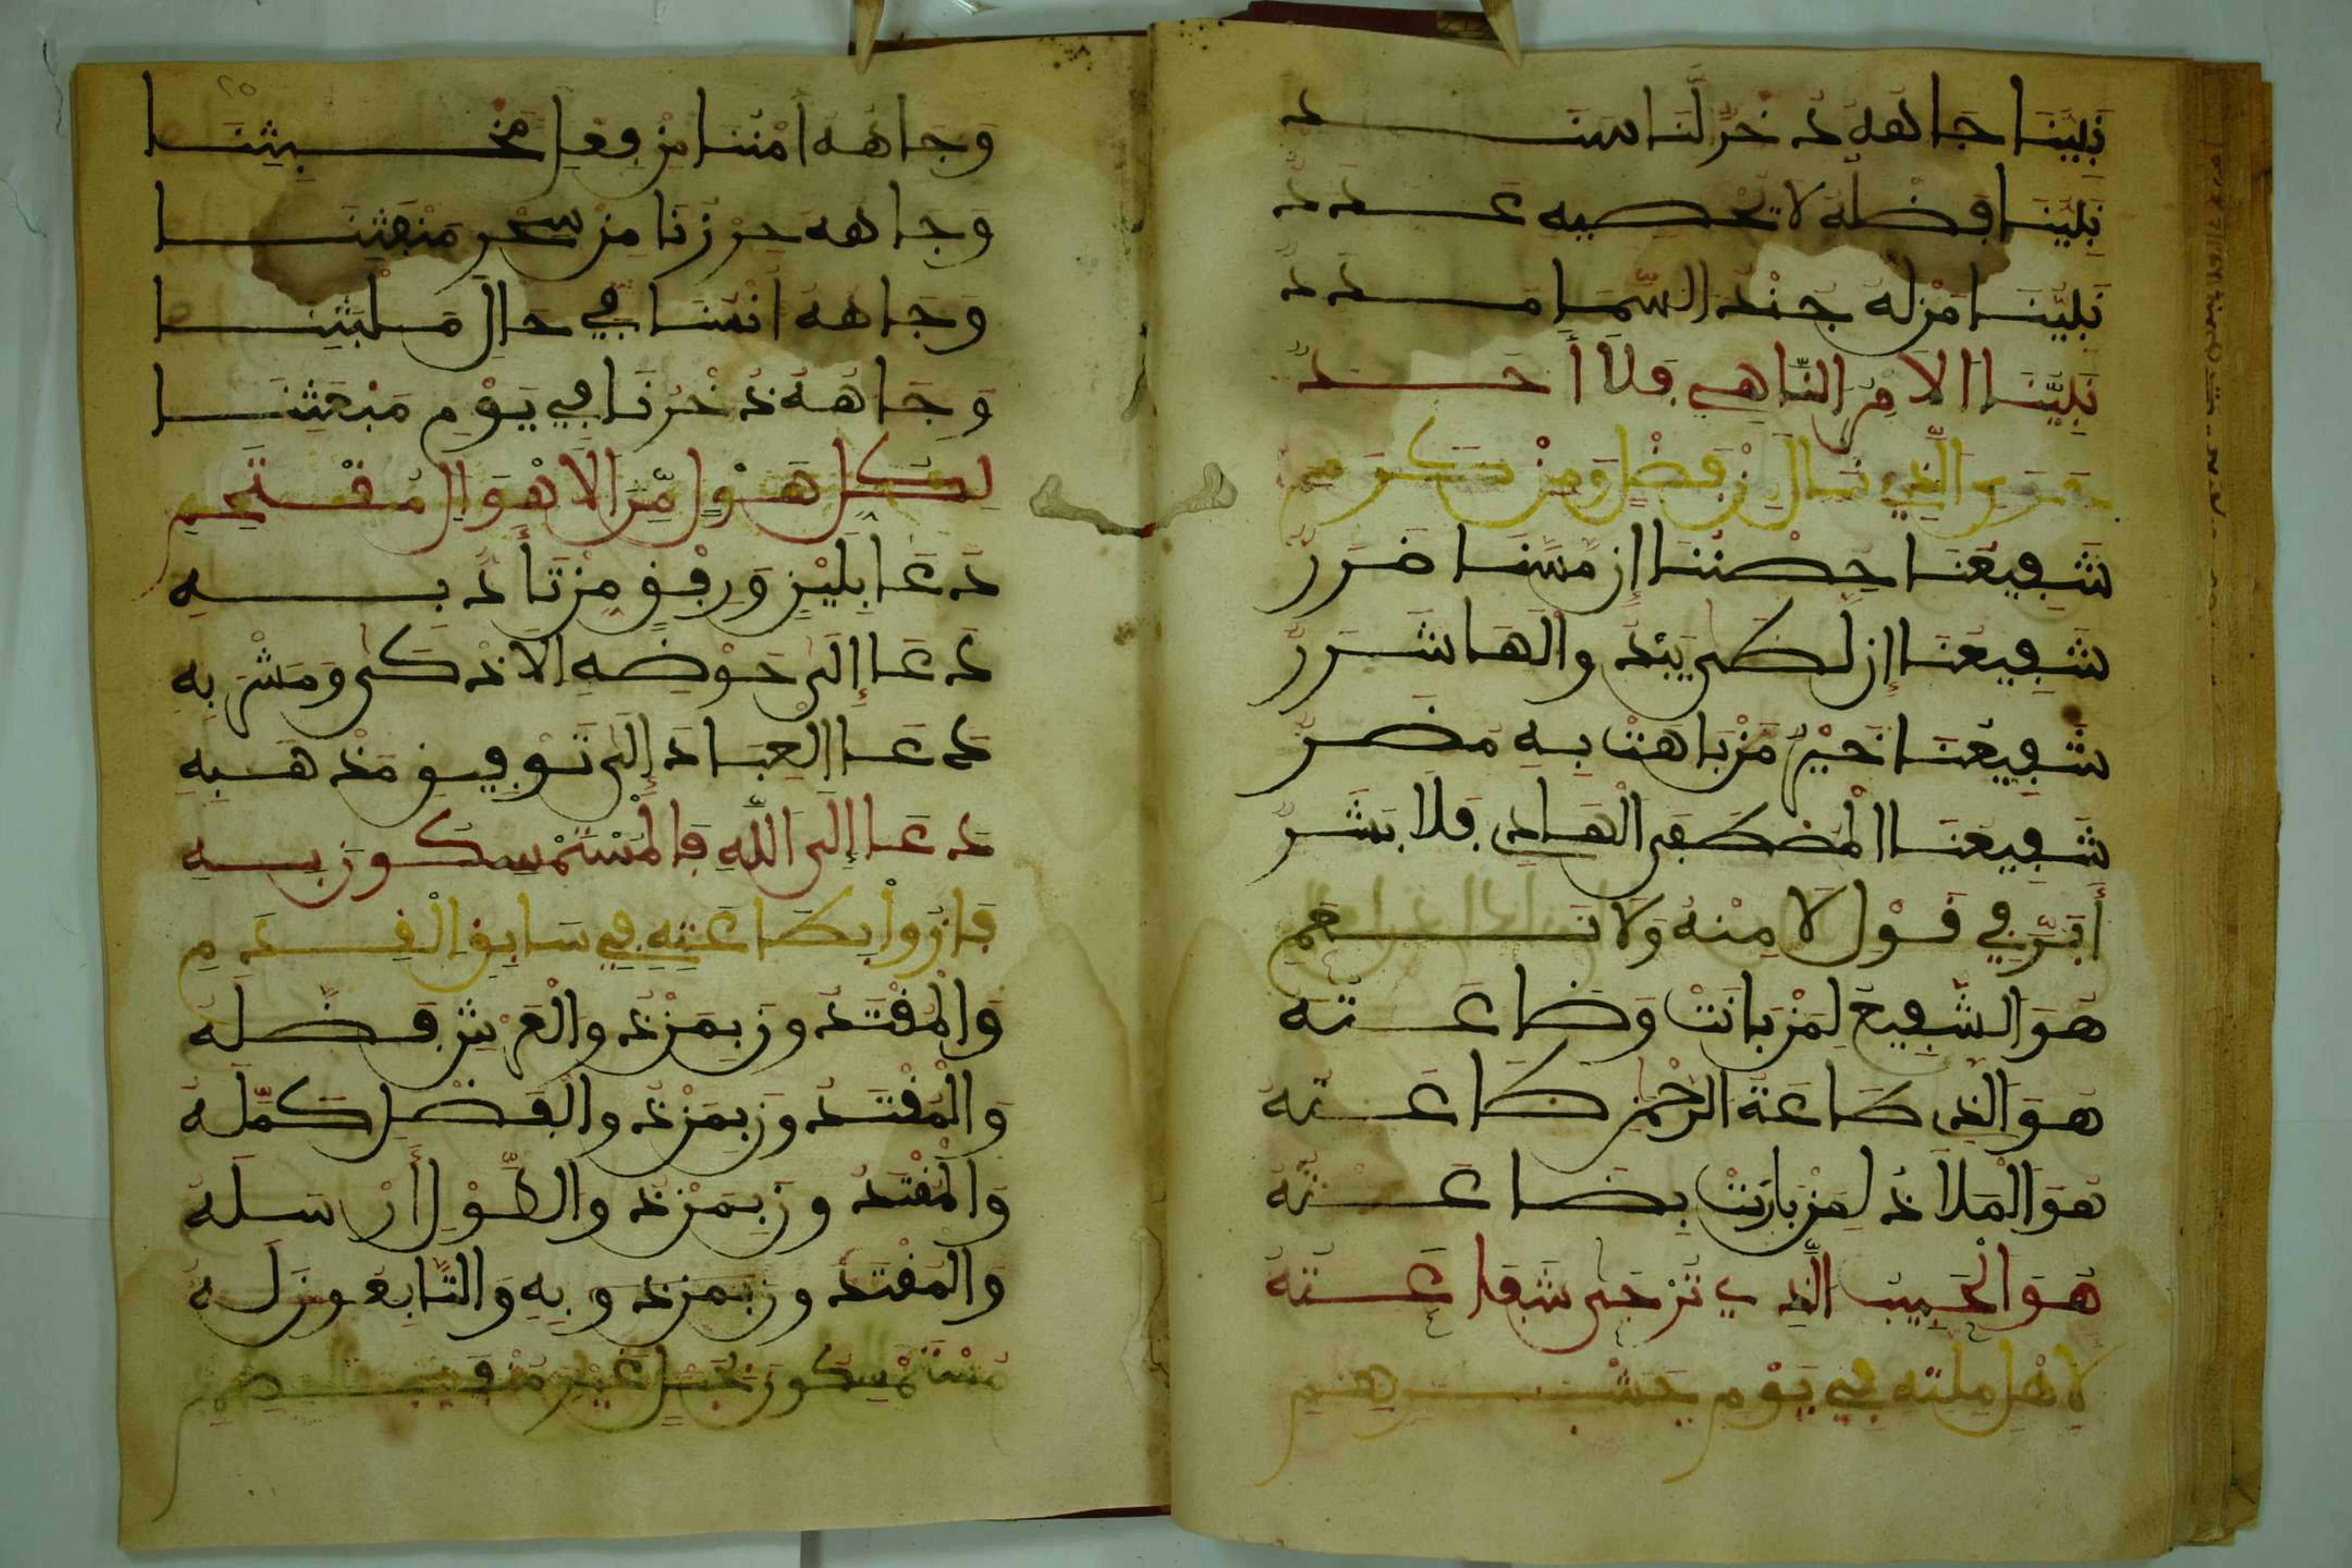 نَبِيُّنَا جَاهُهُ ذُخْرٌ لَنَا سَنَدُ
نَبِيُّنَا فَضْلُهُ لَا تُحْصِيهِ عَدَدُ
نَبِيُّنَا مَنْ لَهُ جُنْدُ السَّمَا مَدَدُ
نَبِيُّنَا الْآمِرُ النَّاهِي فَلَا أَحَدٌ
الَّذِي نَالَ مِنْ فَضْلٍ وَمِنْ كَرَمِ
شَفِيعُنَا حِصْنُنَا إِنْ مَسَّنَا ضَرَرٌ
شَفِيعُنَا إِنْ لَظَى يَبْدُو لَهَا شَرَرٌ
شَفِيعُنَا خَيْرُ مَنْ بَاهَتْ بِهِ مُضَرُ
شَفِيعُنَا الْمُصْطَفَى الْهَادِي فَلَا بَشَرٌ
أَبَرَّ فِي قَوْلِ لَا مِنْهُ وَلَا نَعَمِ
هُوَ الشَّفِيعُ لِمَنْ بَانَتْ وَضَاعَتُهُ
هُوَ الَّذِي طَاعَةُ الرَّحْمٰنِ طَاعَتُهُ
هُوَ الْمَلَاذُ لِمَنْ بَارَتْ بِضَاعَتُهُ
هُوَ الْحَبِيبُ الَّذِي تُرْجَى شَفَاعَتُهُ
لِأَهْلِ مِلَّتِهِ فِي يَوْمِ حَشْرِهِمِ
وَجَاهُهُ أَمْنُنَا مِنْ فِعْلِ مُخْبِثِنَا
وَجَاهُهُ حِرْزُنَا مِنْ سِحْرِ مَنْفَثِنَا
وَجَاهُهُ أُنْسُنَا فِي حَالِ مَلْبَثِنَا
وَجَاهُهُ ذُخْرُنَا فِي يَوْمِ مَبْعَثِنَا
لِكُلِّ هَوْلٍ مِنَ الْأَهْوَالِ مُقْتَحِمِ
دَعَا بِلِينٍ وَرِفْقٍ مِنْ تَأَدُّبِهِ
دَعَا إِلَى حَوْضِهِ الْأَذْكَى وَمَشْرَبِهِ
دَعَا الْعِبَادَ إِلَى تَوْفِيقِ مَذْهَبِهِ
دَعَا إِلَى اللَّهِ فَالْمُسْتَمْسِكُونَ بِهِ
فَازُوا بِطَاعَتِهِ فِي سَابِقِ الْقِدَمِ
وَالْمُقْتَدُونَ بِمَنْ ذُو الْعَرْشِ فَضَّلَهُ
وَالْمُقْتَدُونَ بِمَنْ ذُو الْفَضْلِ كَمَّلَهُ
وَالْمُقْتَدُونَ بِمَنْ ذُو الطَّوْلِ أَرْسَلَهُ
وَالْمُقْتَدُونَ بِمَنْ ذُو بِهِ وَالتَّابِعُونَ لَهُ
مُسْتَمْسِكُونَ بِحَبْلٍ غَيْرِ مُنْفَصِمِ